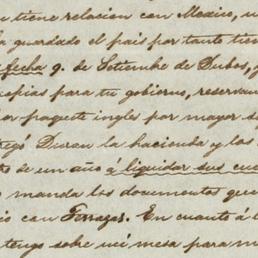 tiene relacion con Mexico, u
guardado el pais por tanto tiem
fecha 9. de Setiembre de Dubos, y
copias para tu gobierno, reservan
paquete ingles por mayor s
Duran la hacienda y los
de un año á liquidar sus cue
manda los documentos que
con Terrazas. En cuanto á l
tengo sobre mi mesa para m